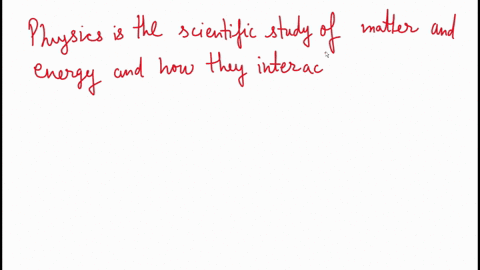 Physics is the scientific study of matter and
energy and how they interac